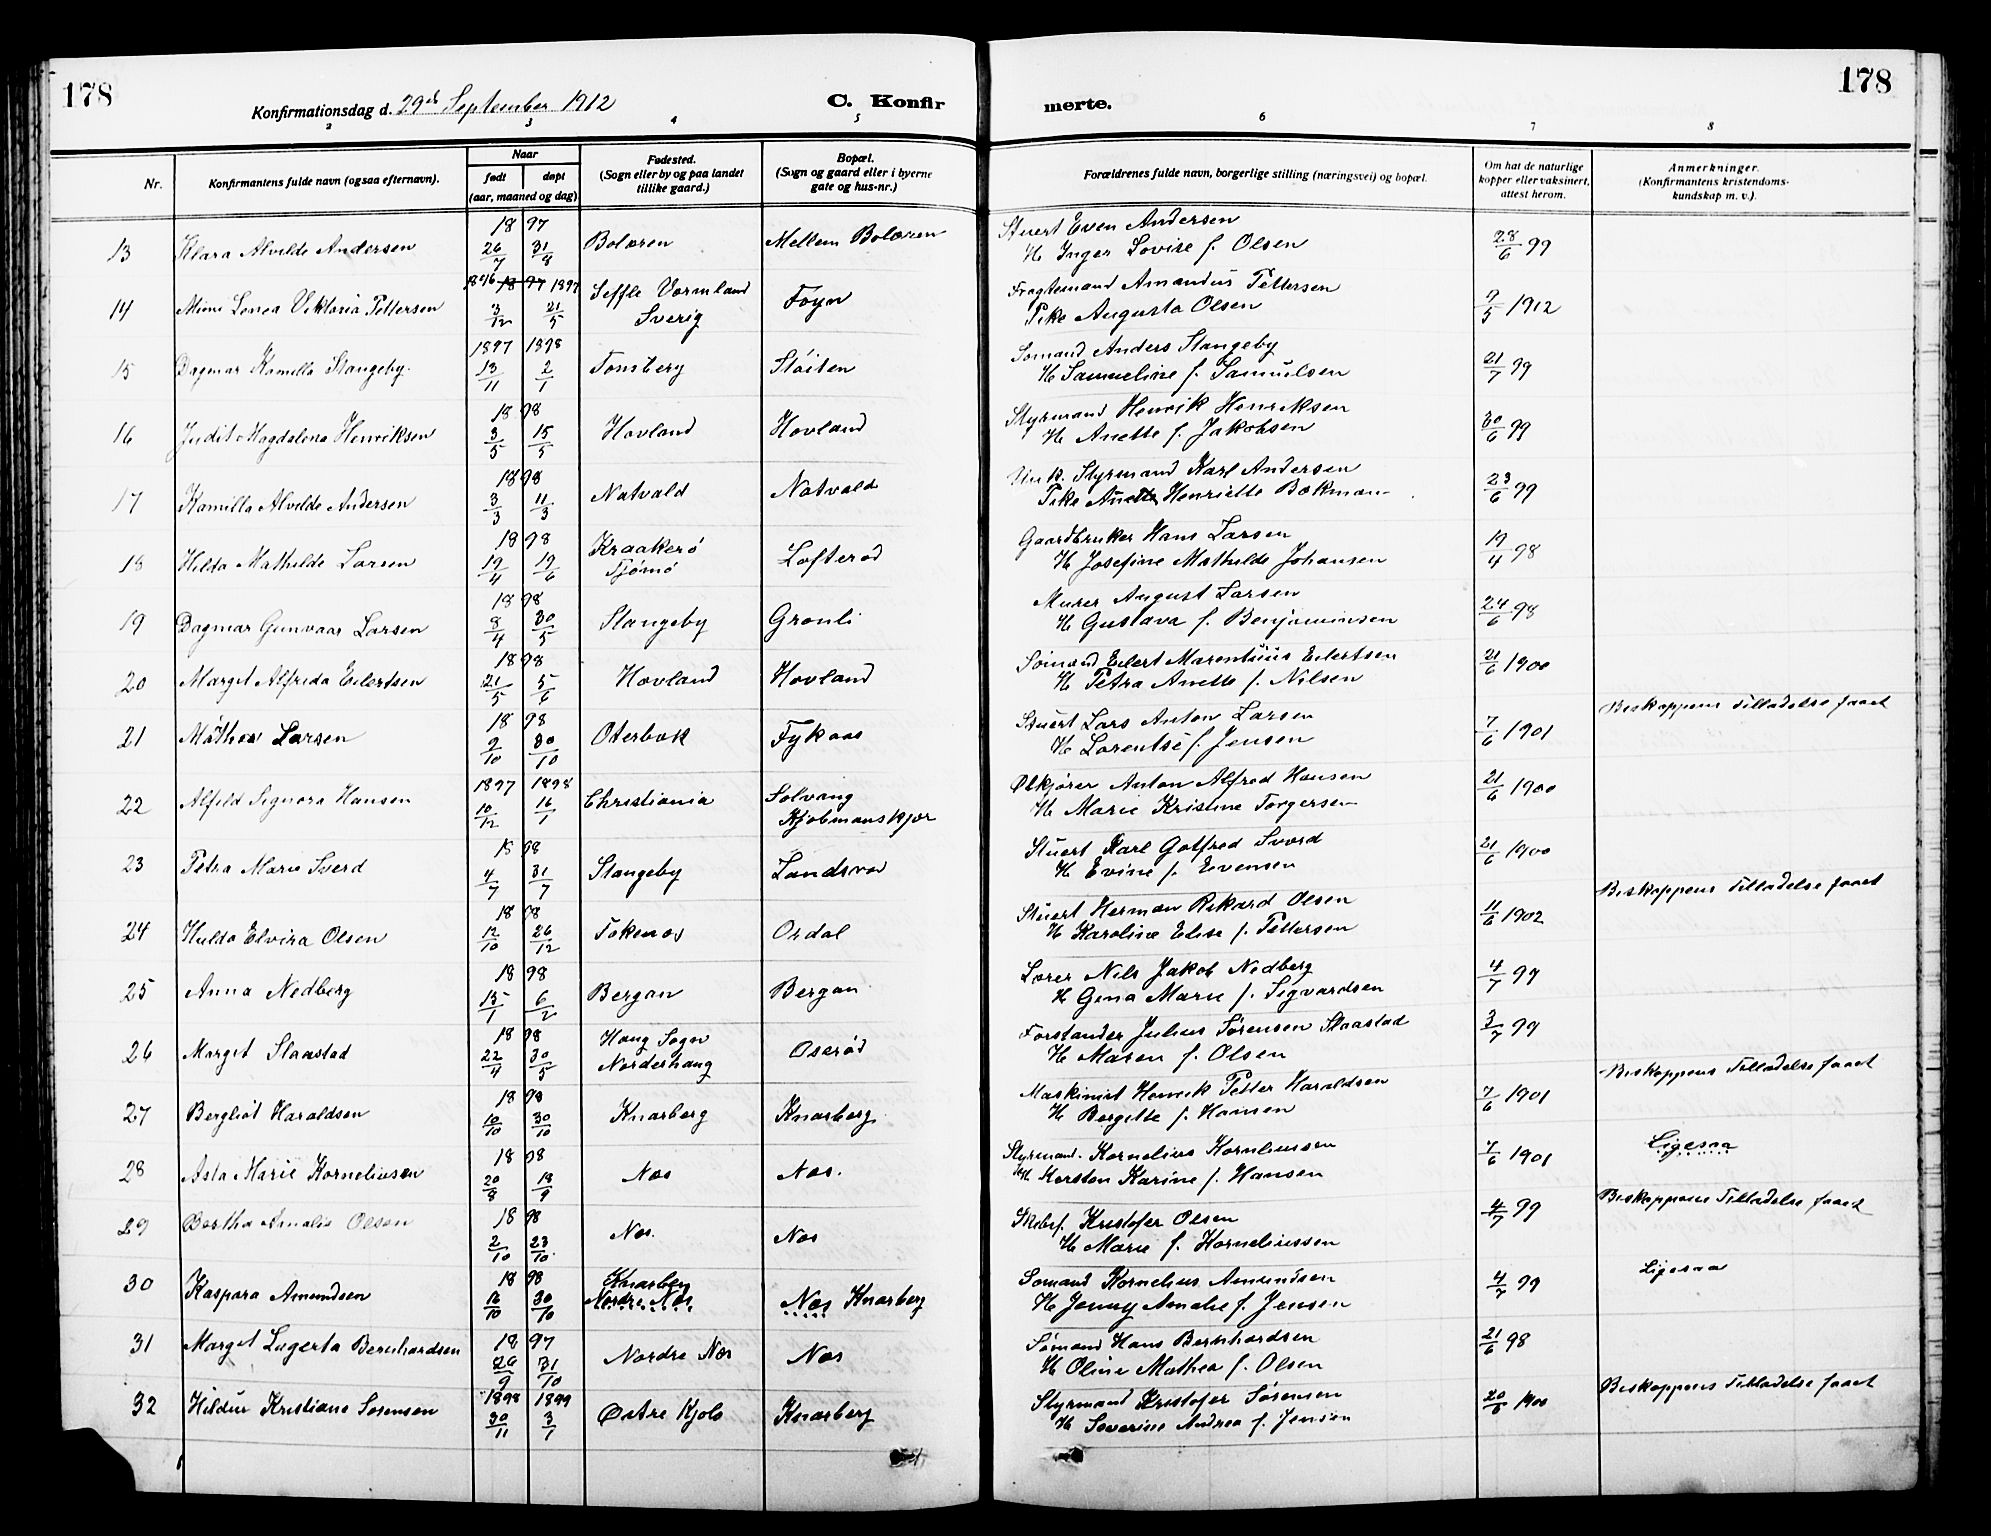 178
178
Konfirmationsdag d. 29de September 1912
C. Konfir
merte.
2 3 4 5 6 7 8
Nr.
Konfirmantens fulde navn (ogsaa efternavn).
Naar
født døpt
(aar, maaned og dag)
Fødested.
(Sogn eller by og paa landet
tillike gaard.)
Bopæl.
(Sogn og gaard eller i byerne
gate og hus-nr.)
Forældrenes fulde navn, borgerlige stilling (næringsvei) og bopæl.
Om hat de naturlige
kopper eller vaksinert,
attest herom.
Anmerkninger.
(Konfirmantens kristendoms-
kundskap m. v.).
18 97 Stuert Even Andersen
13 Klara Alvilde Andersen 26/7 31/8 Bolæren Mellem Bolæren H Inger Lovise f. Olsen 28/6 99
1896 18 97 1897 Seffle Værmland Fragtemand Amandus Pettersen
14 Mimi Linea Viktoria Pettersen 3/12 21/5 Sverig Foyn Pike Augusta Olsen 7/5 1912
1897 1898 Sømand Anders Stangeby
15 Dagmar Kamilla Stangeby. 13/11 2/1 Tønsberg Støiten H Samueline f. Samuelsen 21/7 99
18 98 Styrmand Henrik Henriksen
16 Judit Magdalena Henriksen 3/5 15/5 Hovland Hovland H Anette f. Jakobsen 30/6 99
18 98 Unk. Styrmand Karl Andersen
17 Kamilla Alvilde Andersen 3/3 11/3 Natvald Natvald Pike Anette Henriette Bækman 23/6 99
18 98 Kraakerø Gaardbruker Hans Larsen
18 Hilda Mathilde Larsen 19/4 19/6 Tjømø Lofterød H Josefine Mathilde Johansen 19/4 98
18 98 Murer August Larsen
19 Dagmar Gunvaar Larsen 8/4 30/5 Stangeby Grønli H Gustava f. Benjaminsen 24/6 98
18 98 Sømand Eilert Marentius Eilertsen
20 Margit Alfrida Eilertsen 21/5 5/6 Hovland Hovland H Petra Anette f. Nilsen 21/6 1900
18 98 Stuert Lars Anton Larsen Biskoppens Tilladelse faaet
21 Mathea Larsen 2/10 30/10 Oterbæk Fykaas H Lorentse f. Jensen 7/6 1901
1897 1898 Ølkjører Anton Alfred Hansen
22 Alfild Signora Hansen 10/12 16/1 Christiania Solvang H Marie Kristine Torgersen 21/6 1900
Kjøbmanskjær
18 98 Stuert Karl Gotfred Sværd
23 Petra Marie Sverd 4/7 31/7 Stangeby Landsrød H Evine f. Evensen 21/6 1900
18 98 Stuert Herman Rikard Olsen Biskoppens Tilladelse faaet
24 Hulda Elvira Olsen 12/10 26/12 Tokenes Ordal H Karoline Elise f. Pettersen 11/6 1902
18 98 Lærer Nils Jakob Nedberg
25 Anna Nedberg 15/1 6/2 Bergan Bergan H Gina Marie f. Sigvardsen 4/7 99
18 98 Haug Sogn Forstander Julius Sørensen Staastad
26 Margit Staastad 22/4 30/5 Norderhaug Oserød H Maren f. Olsen 3/7 99
18 98 Maskinist Henrik Petter Haraldsen Biskoppens Tilladelse faaet
27 Bergliot Haraldsen 10/10 30/10 Knarberg Knarberg H Bergitte f. Hansen 7/6 1901
18 98 Styrmand Kornelius Korneliussen Ligesaa
28 Asta Marie Korneliusen 20/8 18/9 Næs Næs. H Kersten Karine f. Hansen 7/6 1901
18 98 Skibsf. Kristofer Olsen Biskoppens Tilladelse faaet
29 Bertha Amalie Olsen 2/10 23/10 Næs. Næs H Marie f. Korneliussen 4/7 99
18 98 Knarberg Sømand Kornelius Amundsen Ligesaa
30 Kaspara Amundsen 16/10 30/10 Nordre Næs Næs Knarberg H Jenny Amalie f. Jensen 4/7 99
18 97 Sømand Hans Bernhardsen
31 Margit Lagerta Bernhardsen 26/9 31/10 Nordre Næs Næs H Oline Mathea f. Olsen 21/6 98
1898 1899 Styrmand Kristofer Sørensen Biskoppens Tilladelse faaet
32 Hildur Kristiane Sørensen 30/11 3/1 Østre Kjøle Knarberg H Severine Andrea f. Jensen 20/6 1900